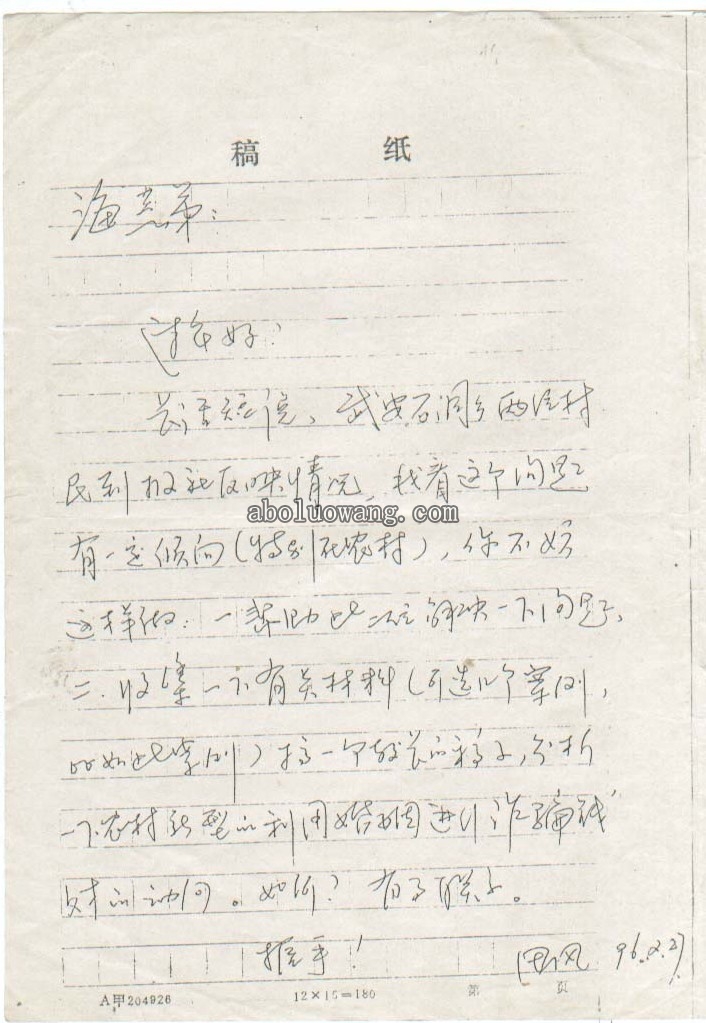 稿 纸
海 弟：
过年好！
长话短说，武安石洞乡两位村
民到报社反映情况，我看这个问题
aboluowang.com
有一定倾向（特别在农村），你不妨
这样做：一帮助此二位解决一下问题，
二.收集一下有关材料（可选几个案例，
如此案例）搞一个较长的稿子，分析
一下农村新型的利用婚姻进行诈骗钱
财的动向。如何？有事联系。
握手！
田风 96.2.27
A甲204926 12×15=180 第 页